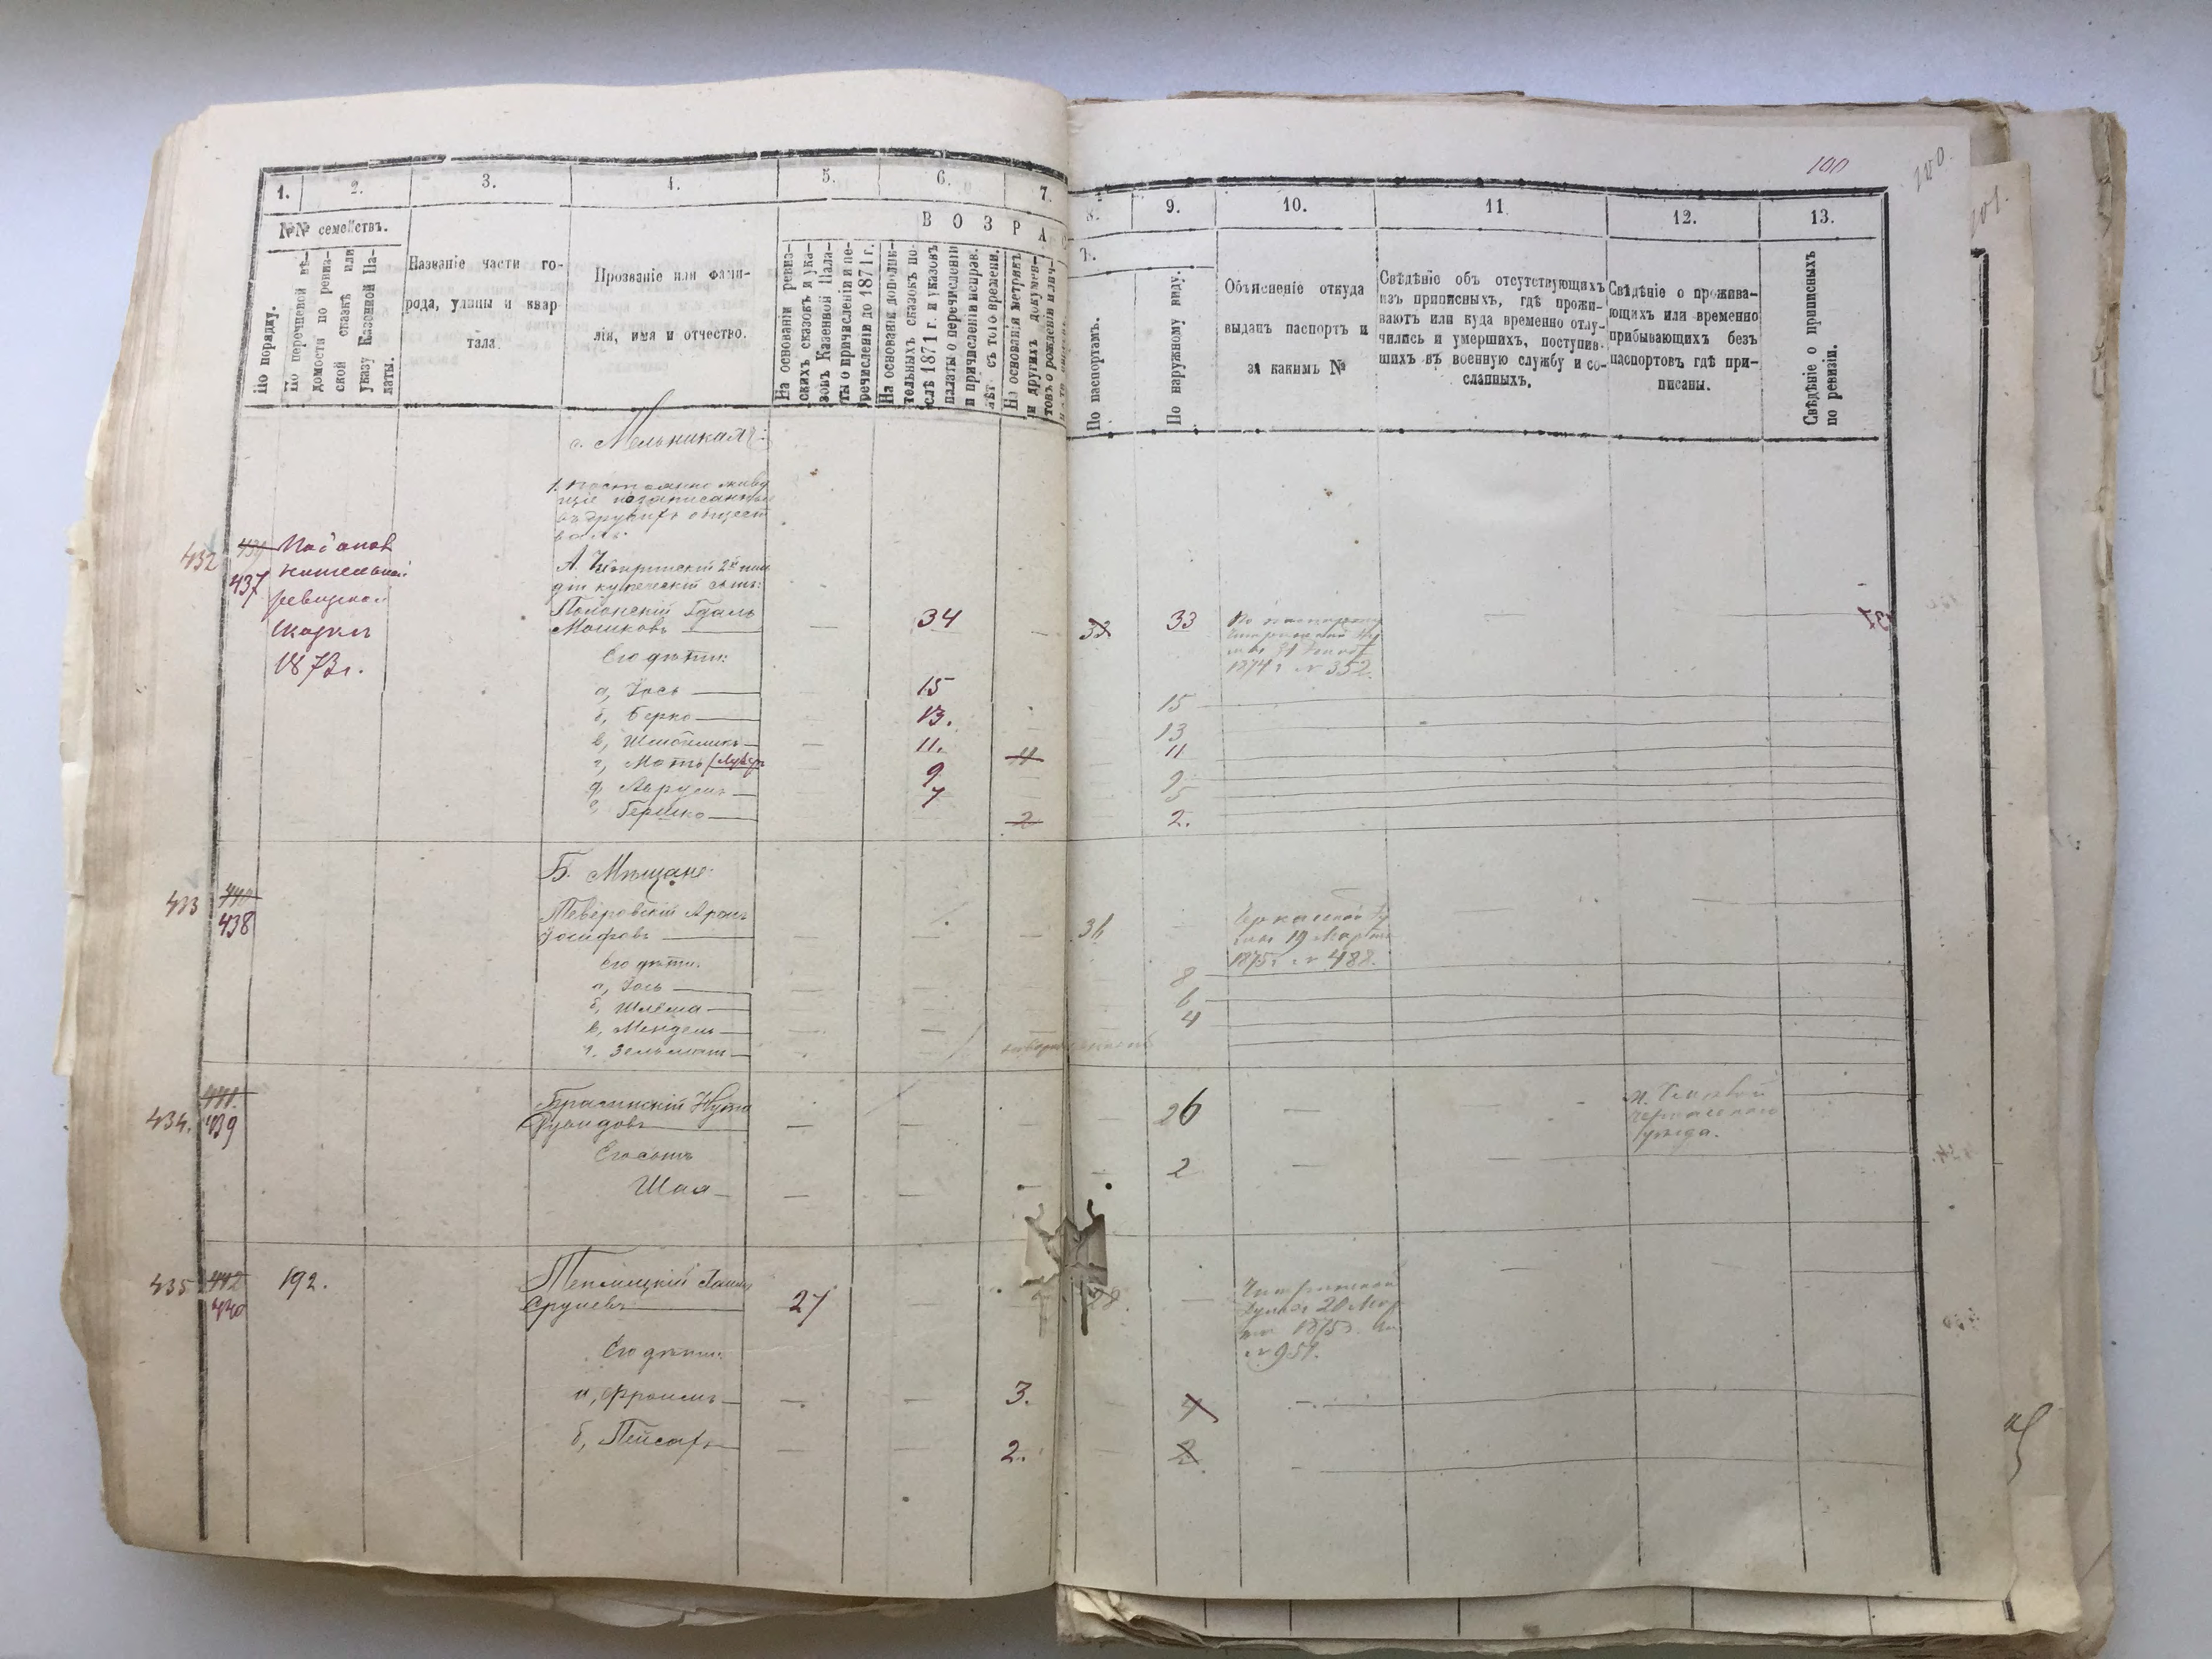 100
100.
101.
1.
2.
3.
4.
5.
6.
7.
8.
9.
10.
11.
12.
13.
№№ семействъ.
В О З Р А С
Т.
По порядку.
По перечневой вѣ-
домости по ревиз-
ской сказкѣ или
указу Казенной Па-
латы.
Названіе части го-
рода, улицы и квар
тала.
Прозваніе или фами-
лія, имя и отчество.
На основаніи ревиз-
скихъ сказокъ и ука-
зовъ Казенной Пала-
ты о причисленіи и пе-
речисленіи до 1871 г.
На основаніи дополни-
тельныхъ сказокъ по-
слѣ 1871 г. и указовъ
палаты о перечисленіи
и причисленіи исправ.
лѣт съ того времени.
На основаніи метрикъ
и другихъ докумен-
товъ о рожденіи или
По паспортамъ.
По наружному виду.
Объясненіе откуда
выданъ паспортъ и
за какимъ №
Свѣдѣніе объ отсутствующихъ
изъ приписныхъ, гдѣ прожи-
ваютъ или куда временно отлу-
чились и умершихъ, поступив-
шихъ въ военную службу и со-
сланныхъ.
Свѣдѣніе о прожива-
ющихъ или временно
прибывающихъ безъ
паспортовъ гдѣ при-
писаны.
Свѣдѣніе о приписныхъ
по ревизіи.
с. Мельникахъ:
1. Постоянно живу
щіе
въ другихъ общест
вахъ.
432
437
ревизской
сказки
1873 г.
А. Чигиринскій 2й гиль
діи купеческій сынъ:
Полонскій Гдаль
Мошковъ 34 33 33
1874 г № 352.
Его дѣти:
а, Іось 15 15
б, Берко 13. 13
в, Шмойликъ 11. 11
г, Мотъ 9 4 9
д, Аврумъ 7 5
е, Гершко 2 2.
Б. Мѣщане
433 440
438
Теверовскій Аронъ
Іосифовъ 36
Черкасской Ду
мы 19 Марта
1875 г № 488.
Его дѣти.
а, Іось 8
б, Шлёма 6
в, Мендель 4
г. Зельманъ
434. 441.
439
Брагинскій Нута
Дувидовъ 26
Черкасского
уѣзда.
Его сынъ 2
Шая
435 442 192.
440
Теплицкій
Срулевъ 27 28.
Чигиринской
Думы 20 Мар
та 1875 г. за
№ 951.
Его дѣти:
а, Фроимъ 3. 4
б, Пейсахъ 2. 2.